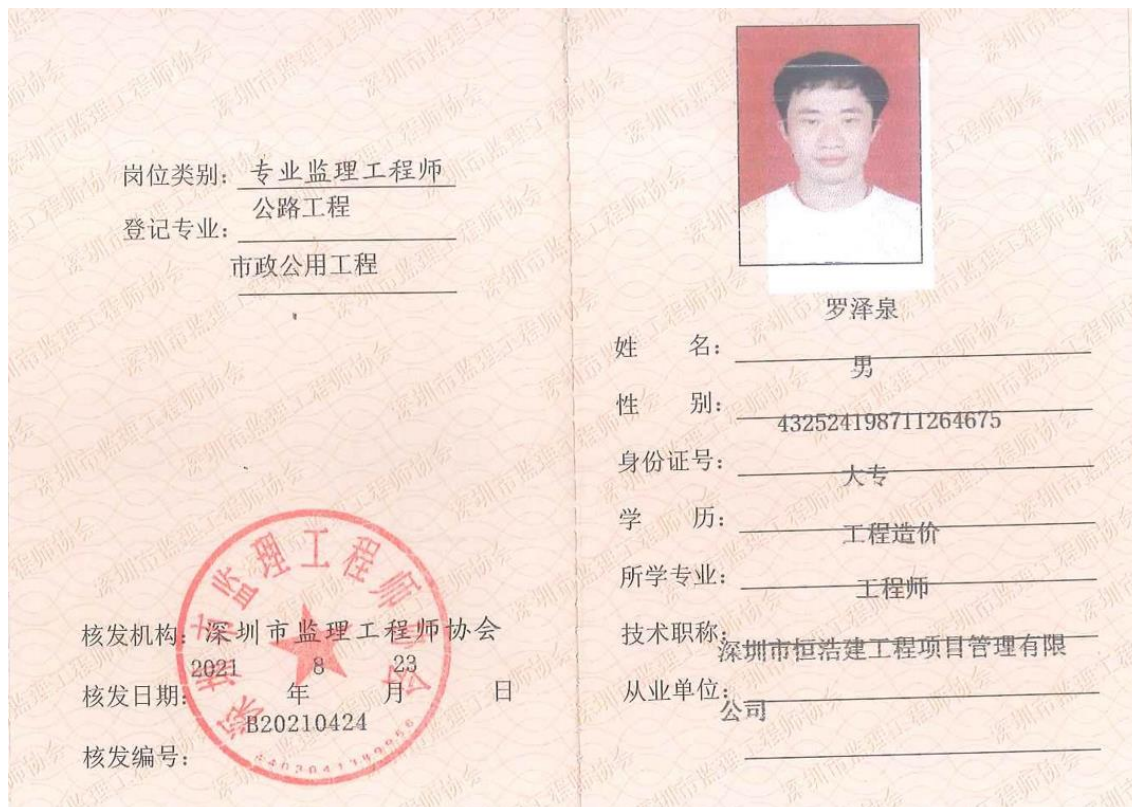 岗位类别: 专业监理工程师
登记专业: 公路工程
市政公用工程
核发机构: 深圳市监理工程师协会
核发日期: 2021年8月23日
核发编号: B20210424
深圳市监理工程师协会
姓名: 罗泽泉
性别: 男
身份证号: 432524198711264675
学历: 大专
所学专业: 工程造价
技术职称: 工程师
从业单位: 深圳市恒浩建工程项目管理有限
公司